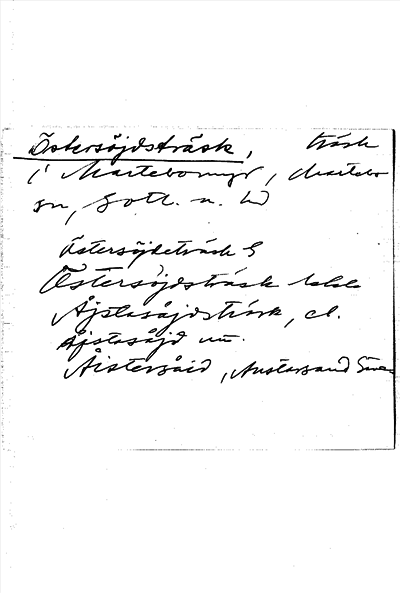 Östersöjdsträsk, träsk
i Martebomyr, Martebo
sn, Gotl. n. hd
Östersöjdeträsk G
Östersöjdsträsk
Åjstasåjdsträsk, el.
Åjstasåjd
Åistersåid,